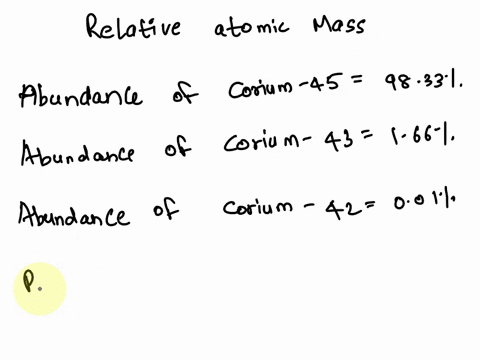 Relative atomic Mass
Abundance of Corium-45 = 98.33%.
Abundance of Corium-43 = 1.66%.
Abundance of Corium-42 = 0.01%.
P.